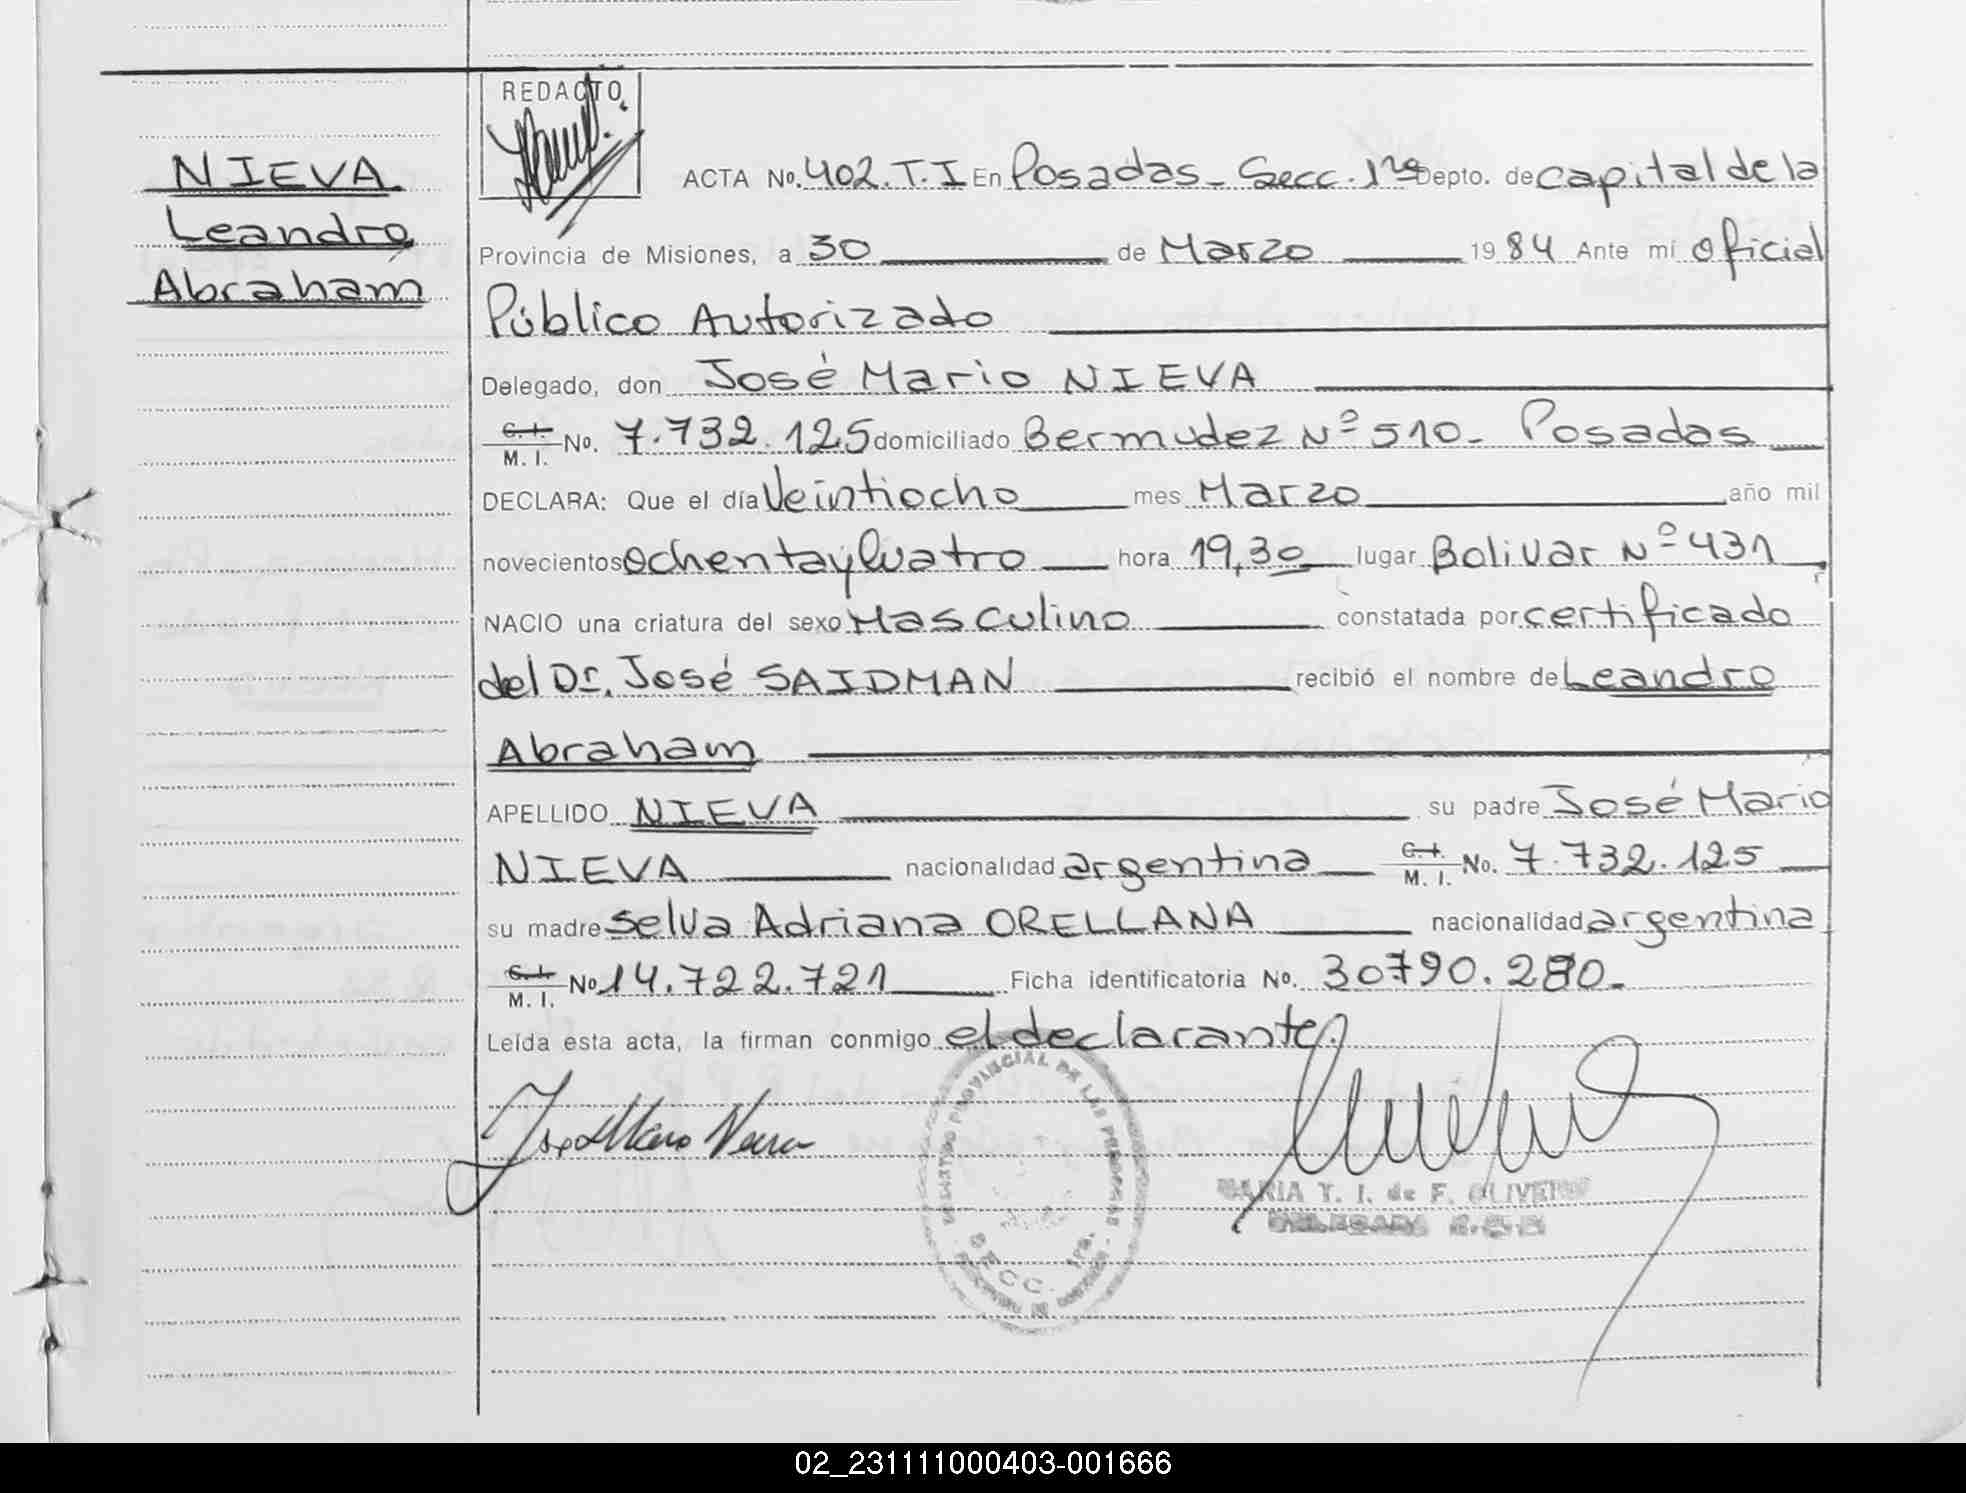 NIEVA
Leandro
Abraham
REDACTO
ACTA No. 402. T. I En Posadas - Secc. 1ra Depto. de capital de la
Provincia de Misiones, a 30 de Marzo 1984 Ante mí oficial
Público Autorizado
Delegado, don José Mario NIEVA
C. I. / M. I. No. 7.732.125 domiciliado Bermudez Nº 510 - Posadas
DECLARA: Que el día Veintiocho mes Marzo año mil
novecientos ochenta y cuatro hora 19,30 lugar Bolivar Nº 431
NACIO una criatura del sexo Masculino constatada por certificado
del Dr. José SAIDMAN recibió el nombre de Leandro
Abraham
APELLIDO NIEVA su padre José Mario
NIEVA nacionalidad argentina C. I. / M. I. No. 7.732.125
su madre Selva Adriana ORELLANA nacionalidad argentina
C. I. / M. I. No 14.722.721 Ficha identificatoria No. 30790.280.
Leída esta acta, la firman conmigo el declarante.
José Mario Nieva
REGISTRO PROVINCIAL DE LAS PERSONAS
SECC. 1ra.
MARIA T. I. de F. OLIVERA
DELEGADA
02_231111000403-001666